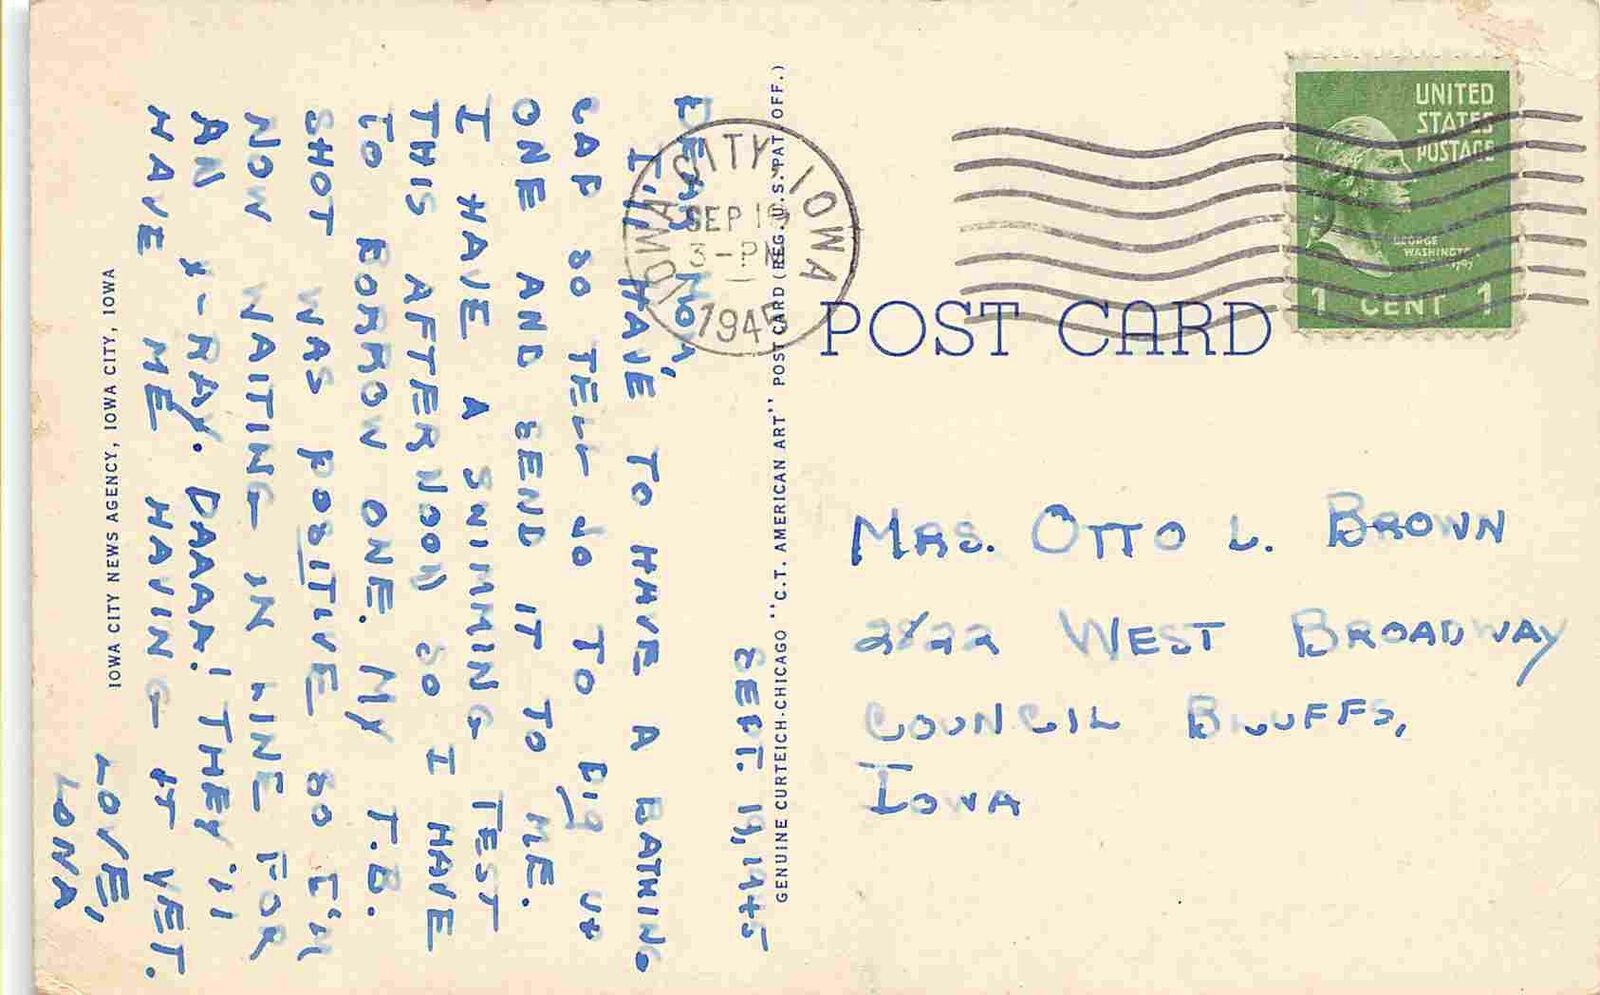 SEPT. 19, 1945
DEAR MOM,
I'll HAVE TO HAVE A BATHING
CAP SO TELL JO TO DIG UP
ONE AND SEND IT TO ME.
I HAVE A SWIMMING TEST
THIS AFTERNOON SO I HAVE
TO BORROW ONE. MY T.B.
SHOT WAS POSITIVE SO I'M
NOW WAITING IN LINE FOR
AN X-RAY. DAAAA! THEY'll
HAVE ME HAVING IT YET.
LOVE,
LONA
IOWA CITY NEWS AGENCY, IOWA CITY, IOWA
GENUINE CURTEICH-CHICAGO "C.T. AMERICAN ART" POST CARD (REG. U.S. PAT. OFF.)
IOWA CITY, IOWA
SEP 19
3-PM
1945
POST CARD
UNITED
STATES
POSTAGE
GEORGE
WASHINGTON
1 CENT 1
MRS. OTTO L. BROWN
WEST BROADWAY
COUNCIL BLUFFS,
IOWA